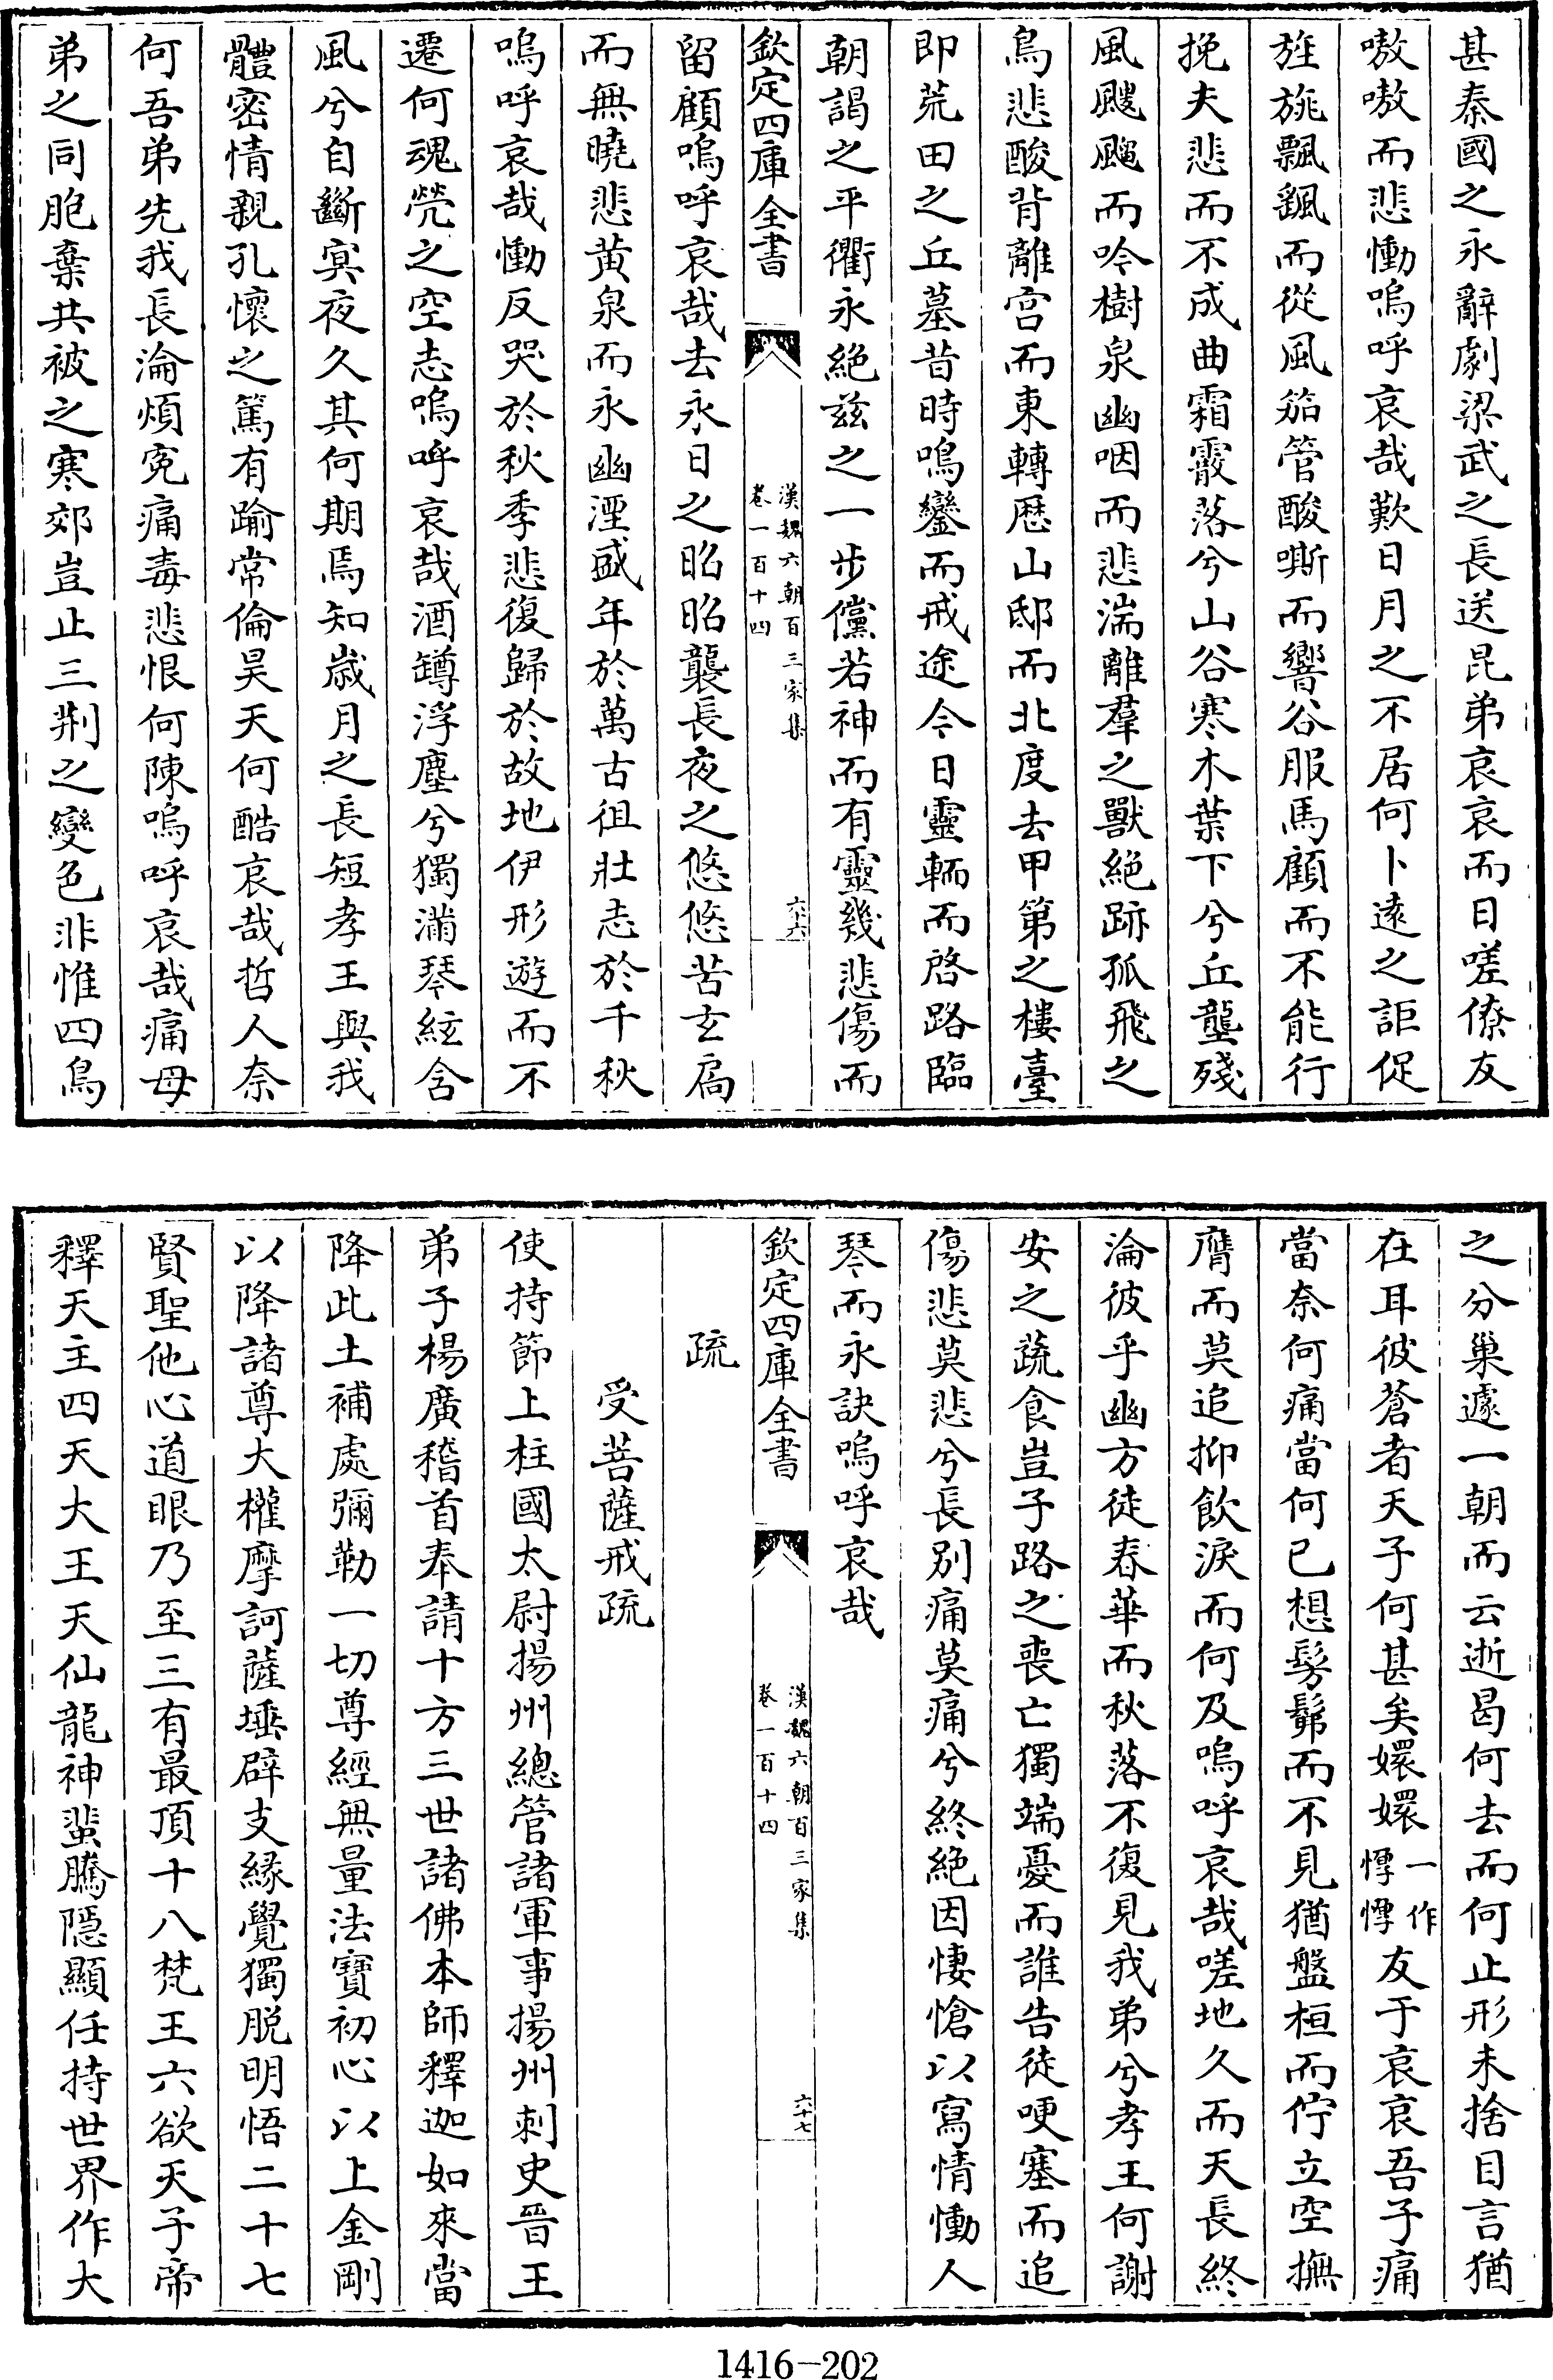 甚秦國之永辭劇梁武之長送昆弟哀哀而日嗟僚友
嗷嗷而悲慟嗚呼哀哉歎日月之不居何卜遠之詎促
旌旐飄飄而從風笳管酸嘶而響谷服馬顧而不能行
挽夫悲而不成曲霜霰落兮山谷寒木葉下兮丘壟殘
風颼飀而吟樹泉幽咽而悲湍離羣之獸絶跡孤飛之
鳥悲酸背離宫而東轉歴山邸而北度去甲第之樓臺
即荒田之丘墓昔時鳴鑾而戒途今日靈輀而啓路臨
朝謁之平衢永絶兹之一步儻若神而有靈幾悲傷而
欽定四庫全書
漢魏六朝百三家集
卷一百十四
六十六
留顧嗚呼哀哉去永日之昭昭襲長夜之悠悠苦玄扃
而無曉悲黄泉而永幽湮盛年於萬古徂壯志於千秋
嗚呼哀哉慟反哭於秋季悲復歸於故地伊形遊而不
遷何魂煢之空志嗚呼哀哉酒罇浮塵兮獨滿琴絃含
風兮自斷寘夜久其何期焉知歳月之長短孝王與我
體密情親孔懷之篤有踰常倫昊天何酷哀哉哲人奈
何吾弟先我長淪煩寃痛毒悲恨何陳嗚呼哀哉痛母
弟之同胞棄共被之寒郊豈止三荆之變色非惟四鳥
之分巢遽一朝而云逝曷何去而何止形未捨目言猶
在耳彼蒼者天子何甚矣嬛嬛一作惸惸友于哀哀吾子痛
當奈何痛當何已想髣髴而不見猶盤桓而佇立空撫
膺而莫追抑飲淚而何及嗚呼哀哉嗟地久而天長終
淪彼乎幽方徒春華而秋落不復見我弟兮孝王何謝
安之蔬食豈子路之喪亡獨端憂而誰告徒哽塞而追
傷悲莫悲兮長别痛莫痛兮終絶因悽愴以寫情慟人
琴而永訣嗚呼哀哉
欽定四庫全書
漢魏六朝百三家集
卷一百十四
六十七
疏
受菩薩戒疏
使持節上柱國太尉揚州總管諸軍事揚州刺史晉王
弟子楊廣稽首奉請十方三世諸佛本師釋迦如來當
降此土補處彌勒一切尊經無量法寶初心以上金剛
以降諸尊大權摩訶薩埵辟支緣覺獨脱明悟二十七
賢聖他心道眼乃至三有最頂十八梵王六欲天子帝
釋天主四天大王天仙龍神蜚騰隱顯任持世界作大
1416-202